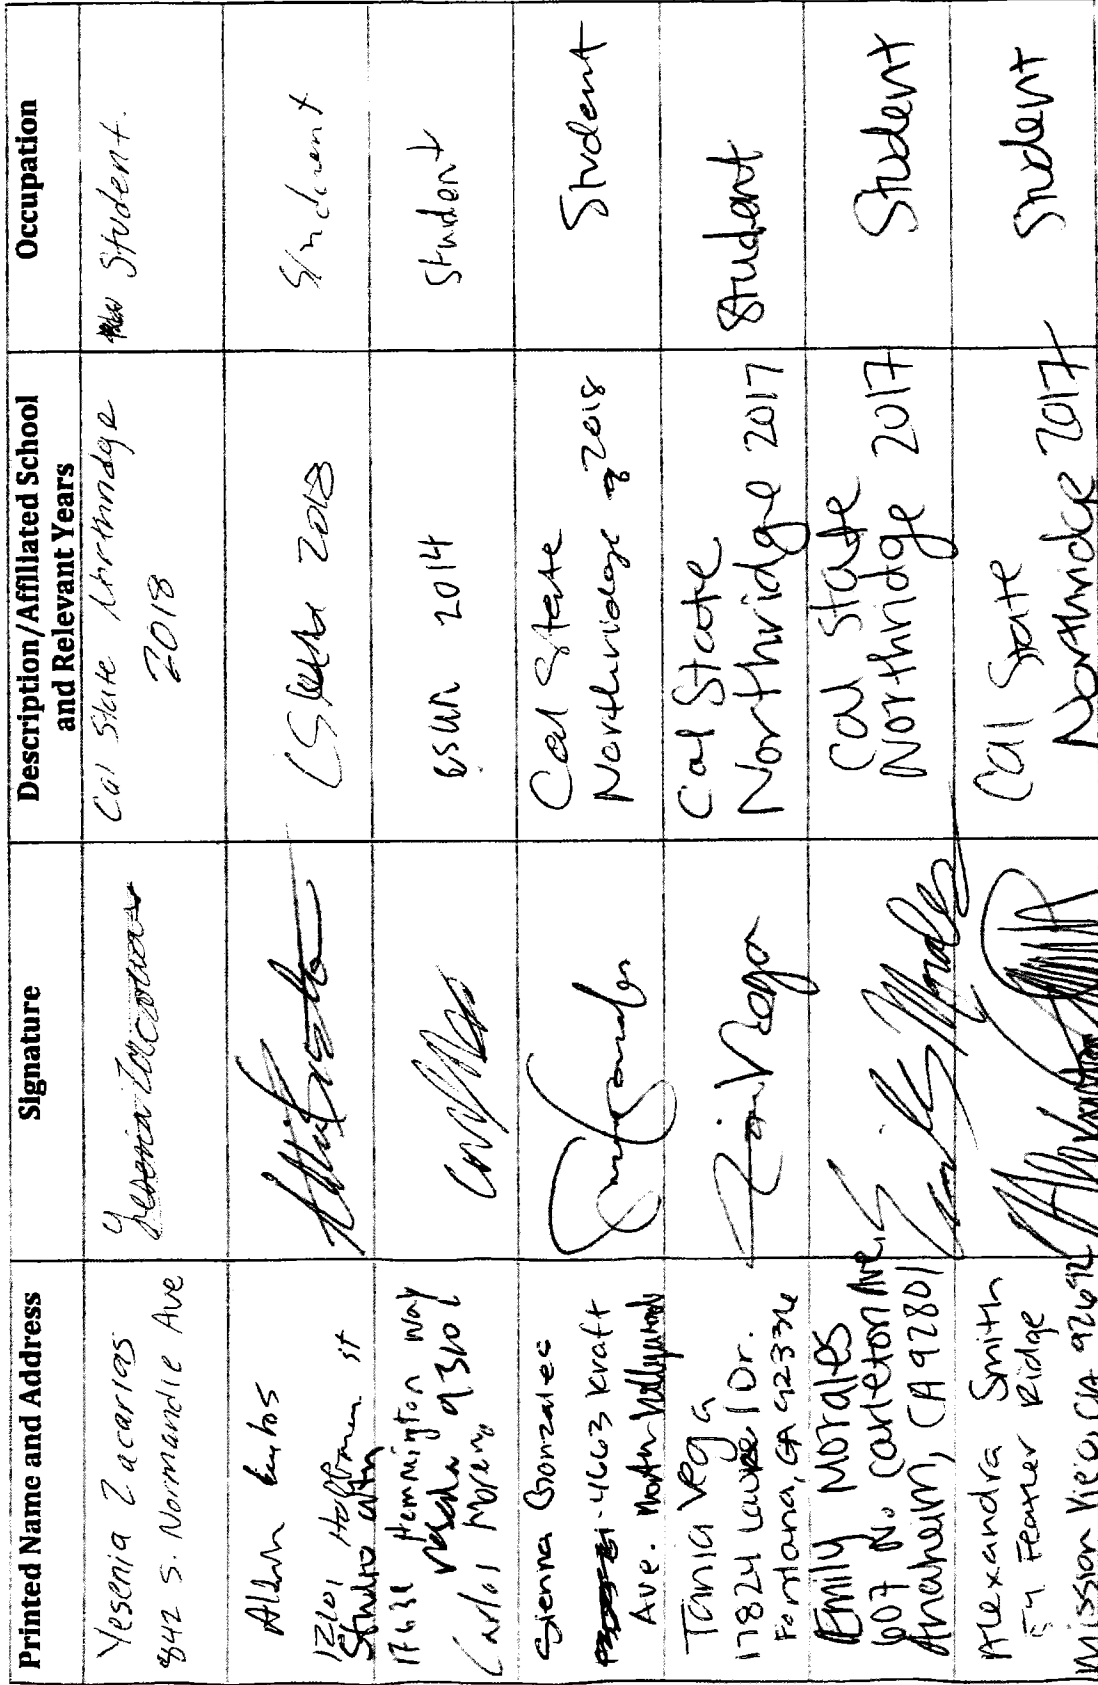 Printed Name and Address
Signature
Description/Affiliated School
and Relevant Years
Occupation
Yesenia Zacarias
842 S. Normandie Ave
Yesenia Zacarias
Cal State Northridge
2018
Student.
12101 Hoffman st
Studio
2018
Student
17631 Hemmington way
reseda
Carlos Moreno
csun 2014
Student
Sienna Gonzales
4663 Kraft
Ave. North Hollywood
Cal State
Northridge 2018
Student
Tania Vega
17824 Laurel Dr.
Fontana, CA 92336
Tania Vega
Cal State
Northridge 2017
Student
Emily Morales
607 N. Carleton Ave.
Anaheim, CA 92801
Emily Morales
Cal State
Northridge 2017
Student
Alexandra Smith
54 Feather Ridge
Mission Viejo, CA 92692
Cal State
Northridge 2017
Student